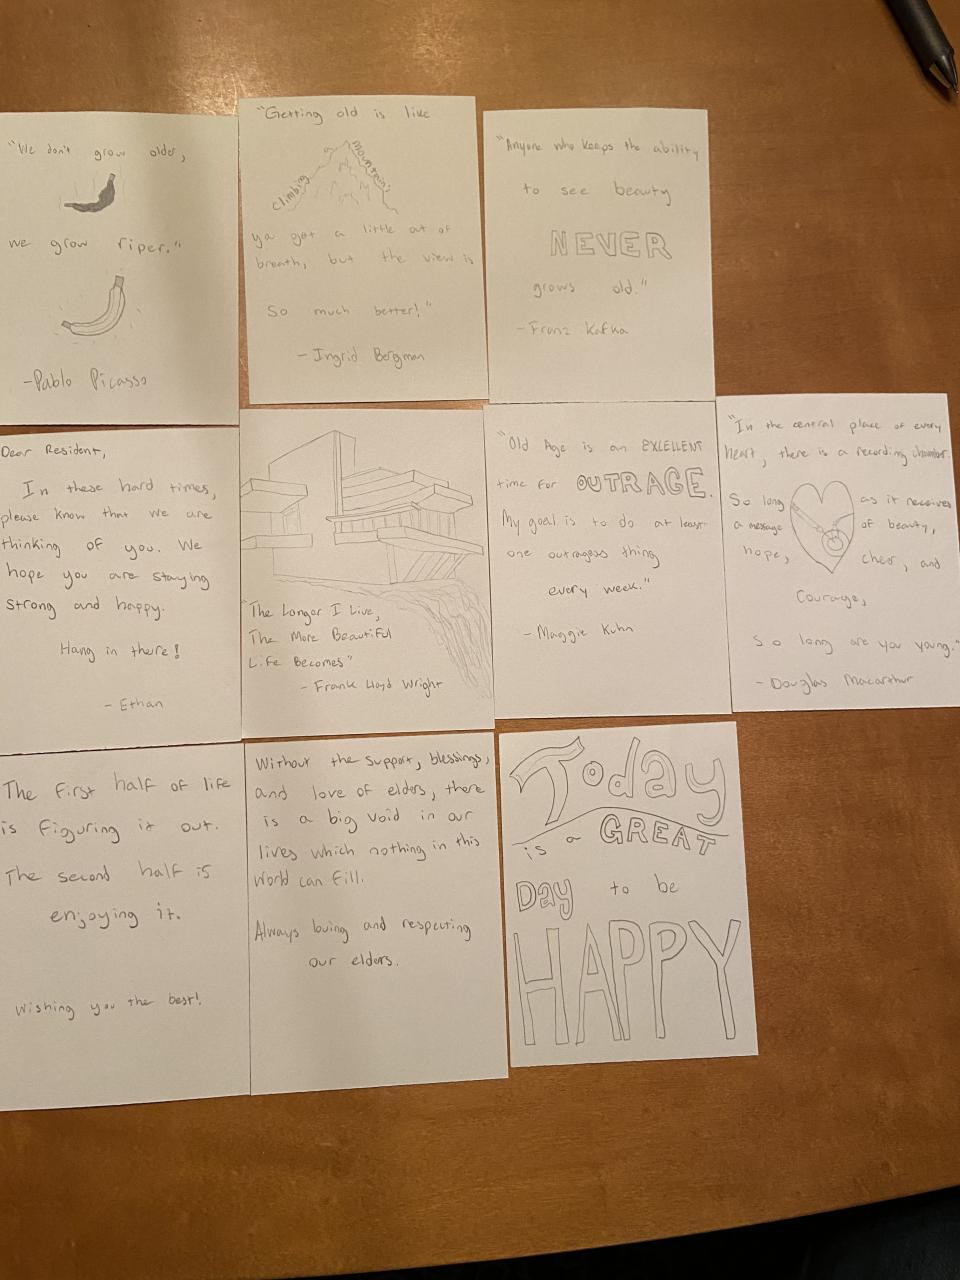 "We don't grow older,
we grow riper."
-Pablo Picasso
"Getting old is like
climbing a mountain;
ya get a little out of
breath, but the view is
so much better!"
- Ingrid Bergman
"Anyone who keeps the ability
to see beauty
NEVER
grows old."
-Franz Kafka
Dear Resident,
In these hard times,
please know that we are
thinking of you. We
hope you are staying
strong and happy.
Hang in there!
- Ethan
"The Longer I Live,
The More Beautiful
Life Becomes"
- Frank Lloyd Wright
"Old Age is an EXCELLENT
time for OUTRAGE.
My goal is to do at least
one outrageous thing
every week."
- Maggie Kuhn
"In the central place of every
heart, there is a recording chamber.
So long as it receives
a message of beauty,
hope, cheer, and
Courage,
so long are you young."
- Douglas Macarthur
The first half of life
is figuring it out.
The second half is
enjoying it.
Wishing you the best!
Without the support, blessings,
and love of elders, there
is a big void in our
lives which nothing in this
world can fill.
Always loving and respecting
our elders.
Today
is a GREAT
Day to be
HAPPY